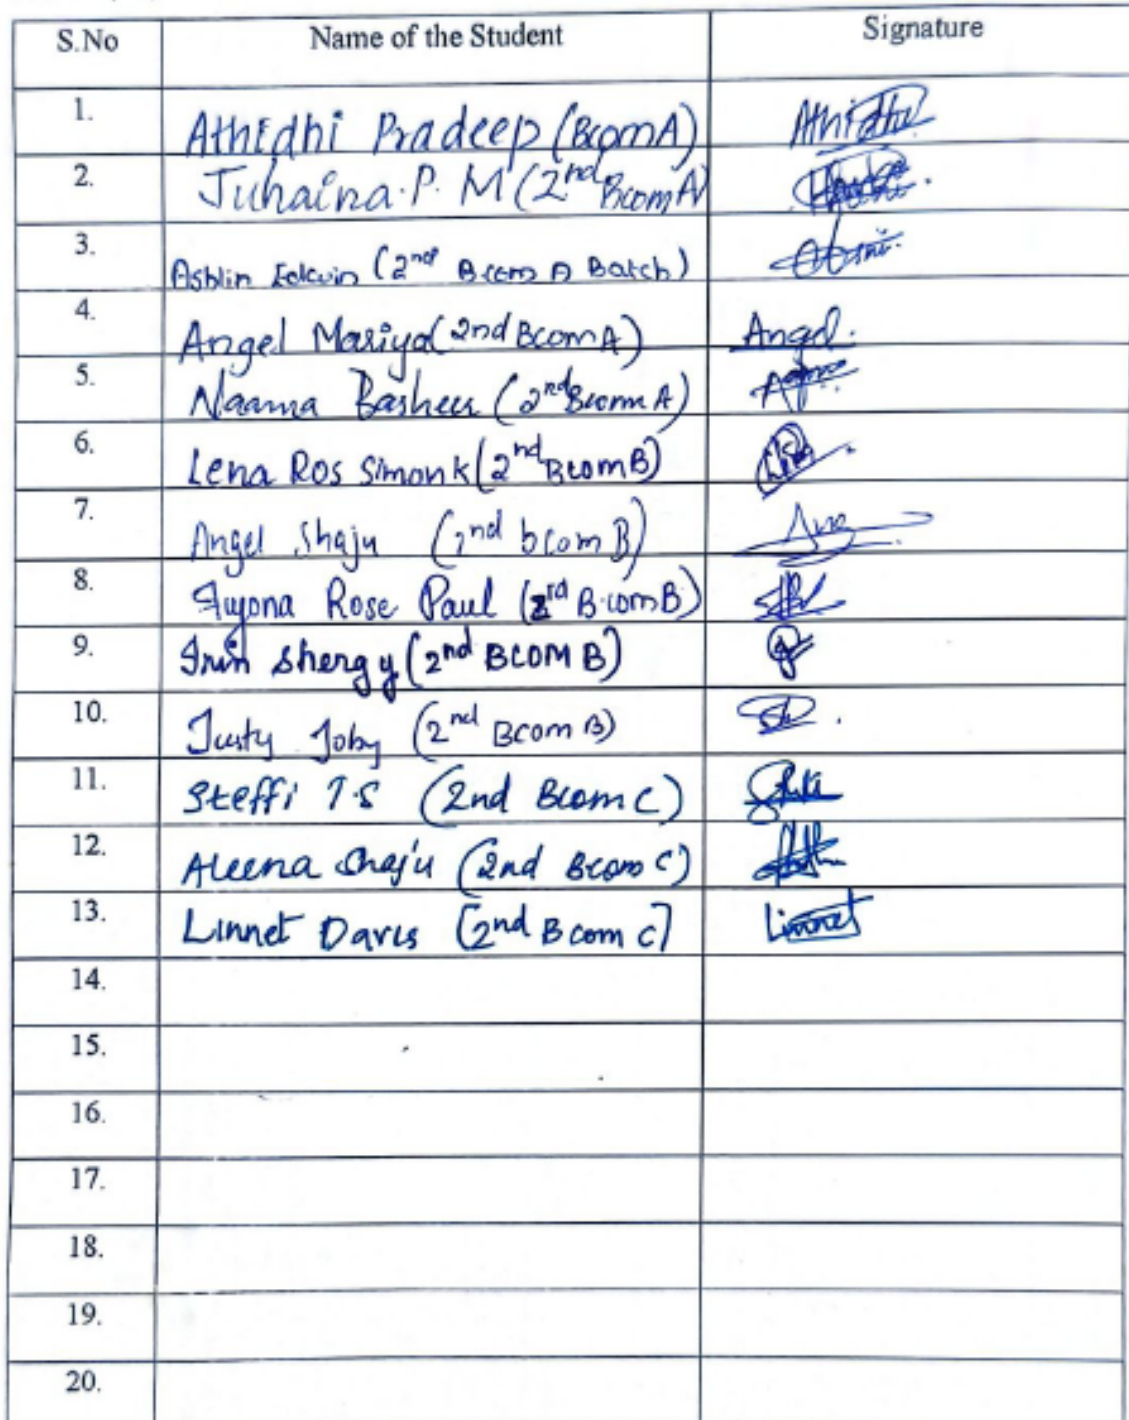 S.No Name of the Student Signature
1. Athidhi Pradeep (Bcom A) Athidhi
2. Juhaina.P.M (2nd Bcom A)
3. Ashlin (2nd Bcom A Batch)
4. Angel Mariya (2nd Bcom A) Angel.
5. Naama Basheer (2nd Bcom A)
6. Lena Ros Simon k (2nd Bcom B)
7. Angel Shaju (2nd bcom B) Ang
8. Rose Paul (2rd B.com B)
9. Irin Shergy (2nd BCOM B)
10. Justy Joby (2nd Bcom B)
11. Steffi T.S (2nd Bcom C)
12. Aleena Shaju (2nd Bcom C)
13. Linnet Davis [2nd Bcom C] Linnet
14.
15.
16.
17.
18.
19.
20.